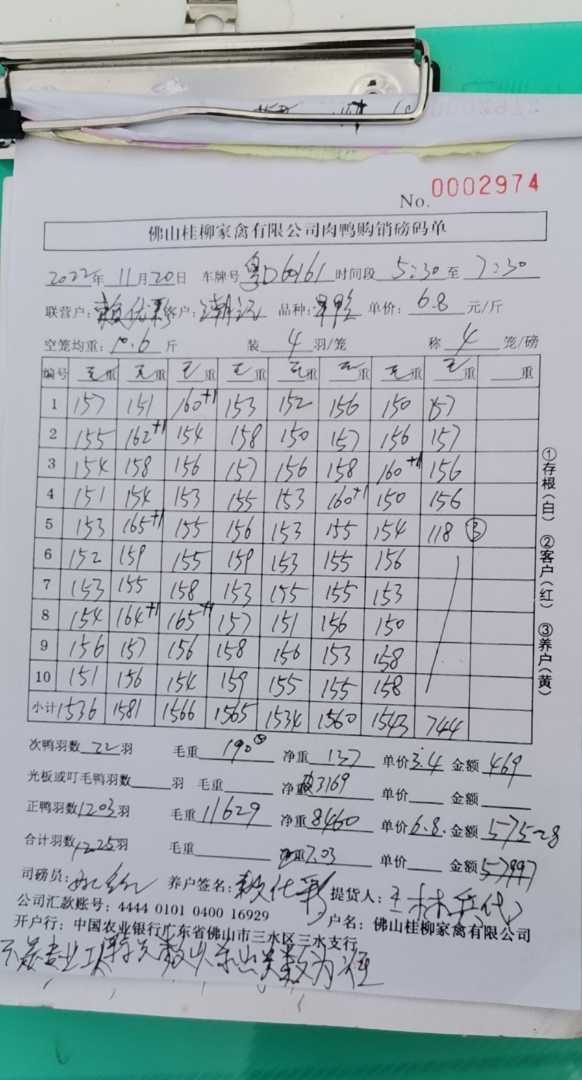 No. 0002974
佛山桂柳家禽有限公司肉鸭购销磅码单
2022年11月20日 车牌号 粤D60161 时间段 5:30 至 7:30
联营户: 客户: 品种: 单价: 6.8 元/斤
空笼均重: 10.6 斤 装 4 羽/笼 称 4 笼/磅
编号 毛重 毛重 毛重 毛重 毛重 毛重 毛重 毛重 重
1 157 151 160+1 153 152 156 150 157
2 155 162+1 154 158 150 157 156 157
3 154 158 156 157 156 158 160+1 156
4 151 154 153 155 153 160+1 150 156
5 153 165+1 155 156 153 155 154 118 ③
6 152 159 155 159 153 155 156
7 153 155 158 153 155 155 153
8 154 164+1 165+1 157 151 156 150
9 156 157 156 158 156 153 158
10 151 156 154 159 155 155 158
小计 1536 1581 1566 1565 1534 1560 1543 744
①存根(白) ②客户(红) ③养户(黄)
次鸭羽数 22 羽 毛重 190 净重 137 单价 3.4 金额 469
光板或叮毛鸭羽数 羽 毛重 净重 3169 单价 金额
正鸭羽数 1203 羽 毛重 11629 净重 8460 单价 6.8 金额 57528
合计羽数 1225 羽 毛重 7.03 单价 金额 57997
司磅员: 养户签名: 提货人:
公司汇款账号: 4444 0101 0400 16929 户名: 佛山桂柳家禽有限公司
开户行: 中国农业银行广东省佛山市三水区三水支行